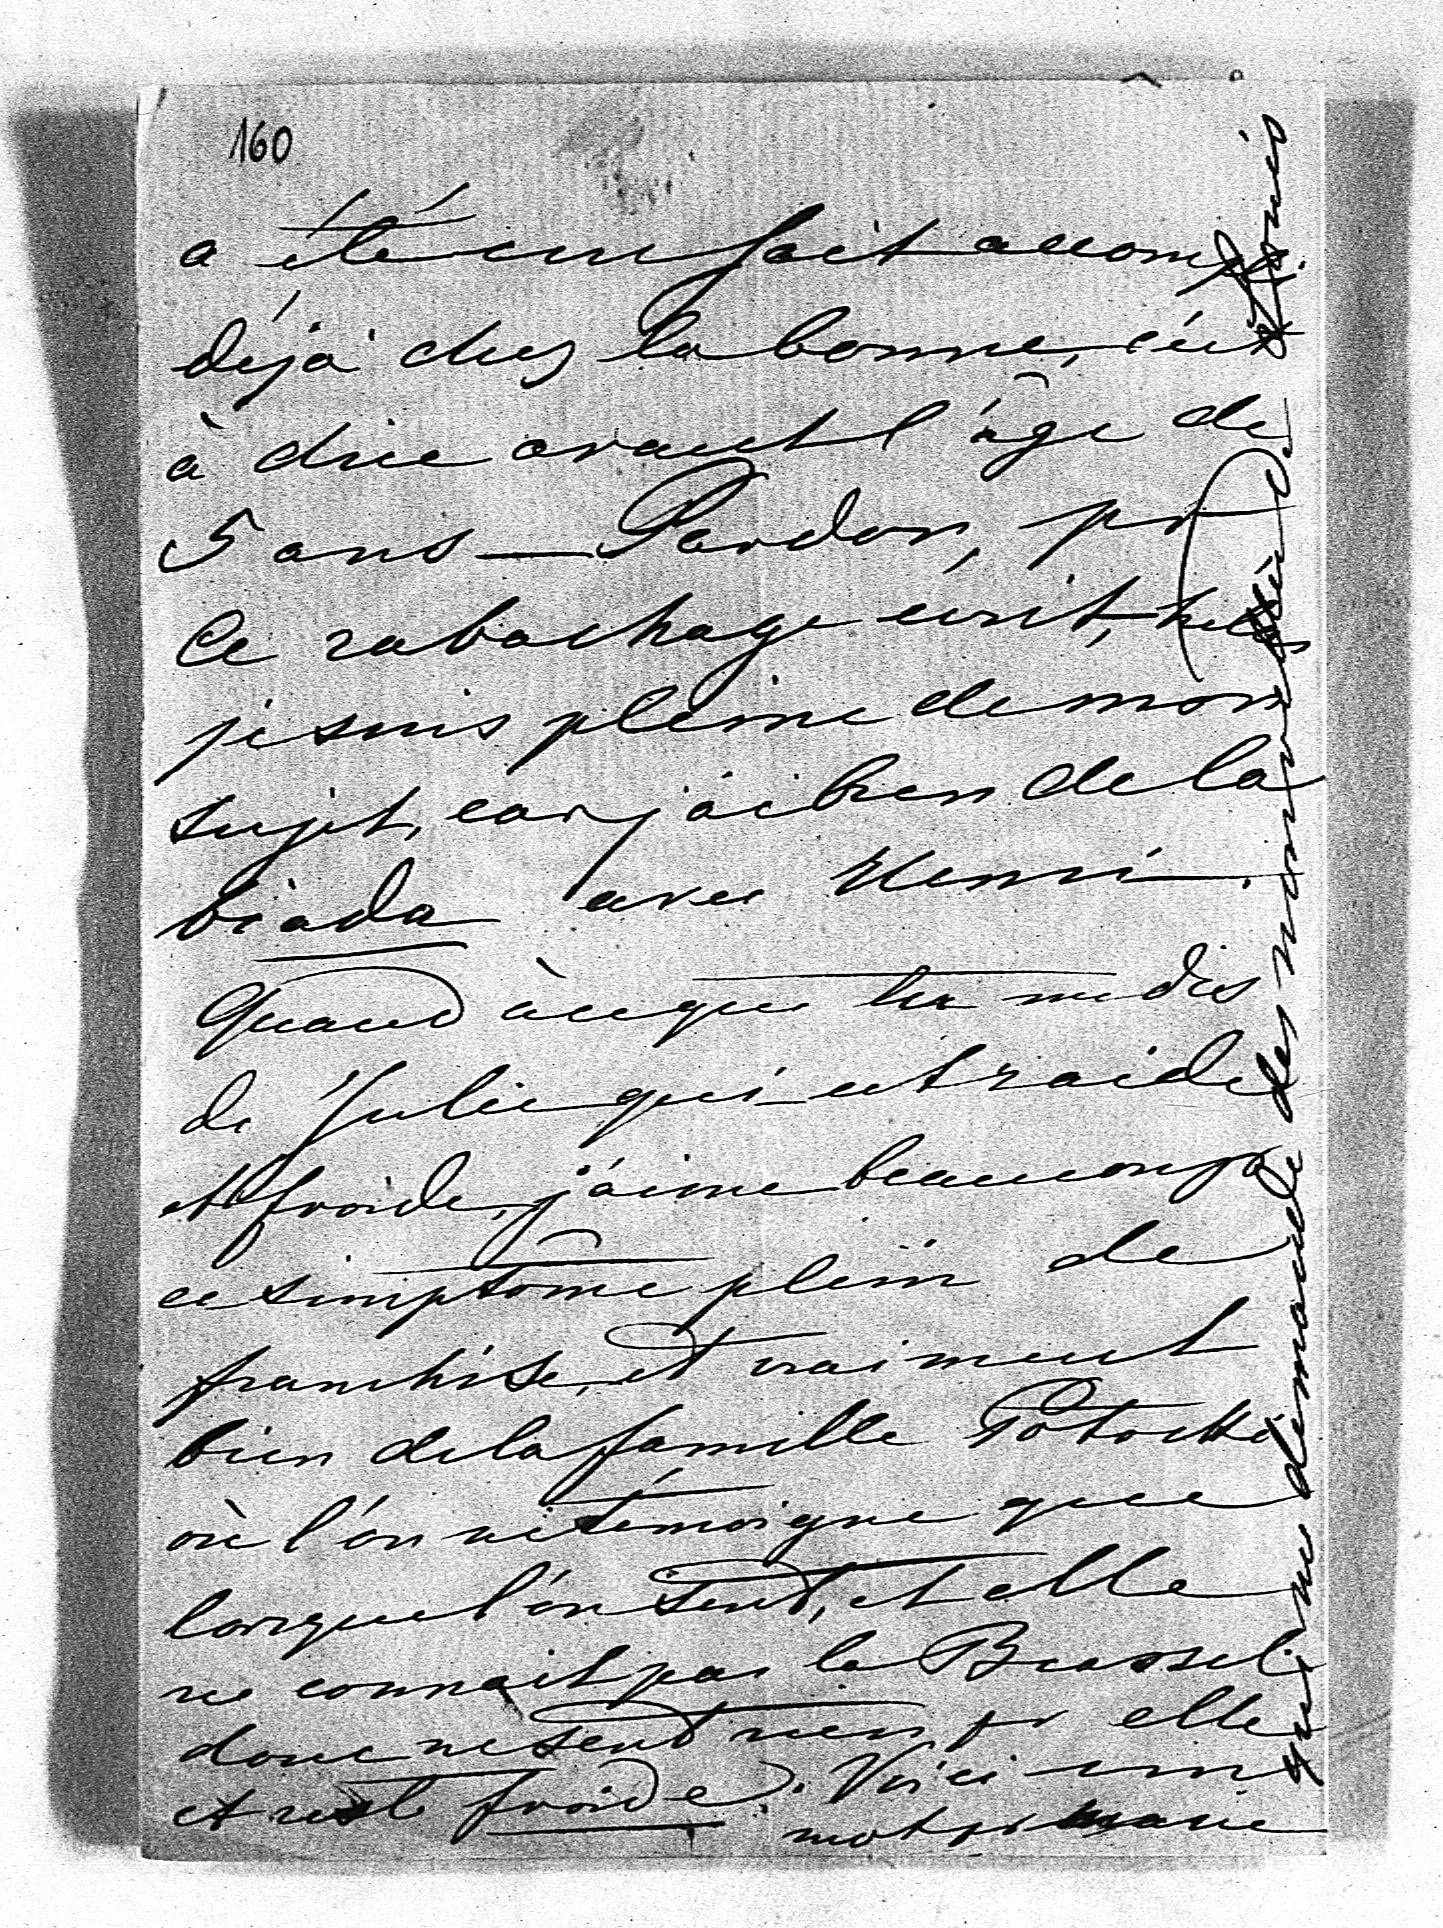 160
a été un fait accompli
déjà chez la bonne, c'est
à dire avant l'âge de
5 ans — Pardon, pr
ce rabachage écrit, hélas
je suis pleine de mon
sujet, car j'ai bien de la
biada avec Henri.
Quand à ce que tu me dis
de Julie qui est raide
et froide, j'aime beaucoup
ce simptôme plein de
franchise, et vraiment
bien de la famille Potocki
où l'on ne témoigne que
lorsque l'on sent, et elle
ne connait pas la
donc ne sent rien pr elle
et reste froide. Voici un
mot pr Marie
qui me demande des